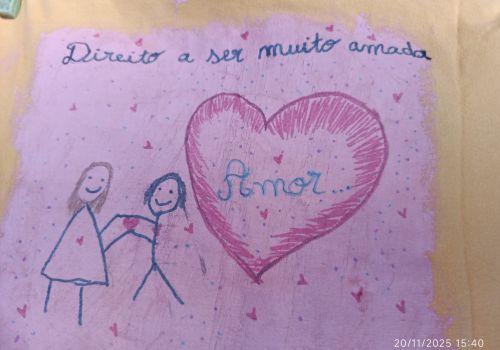 Direito a ser muito amada
Amor...
20/11/2025 15:40